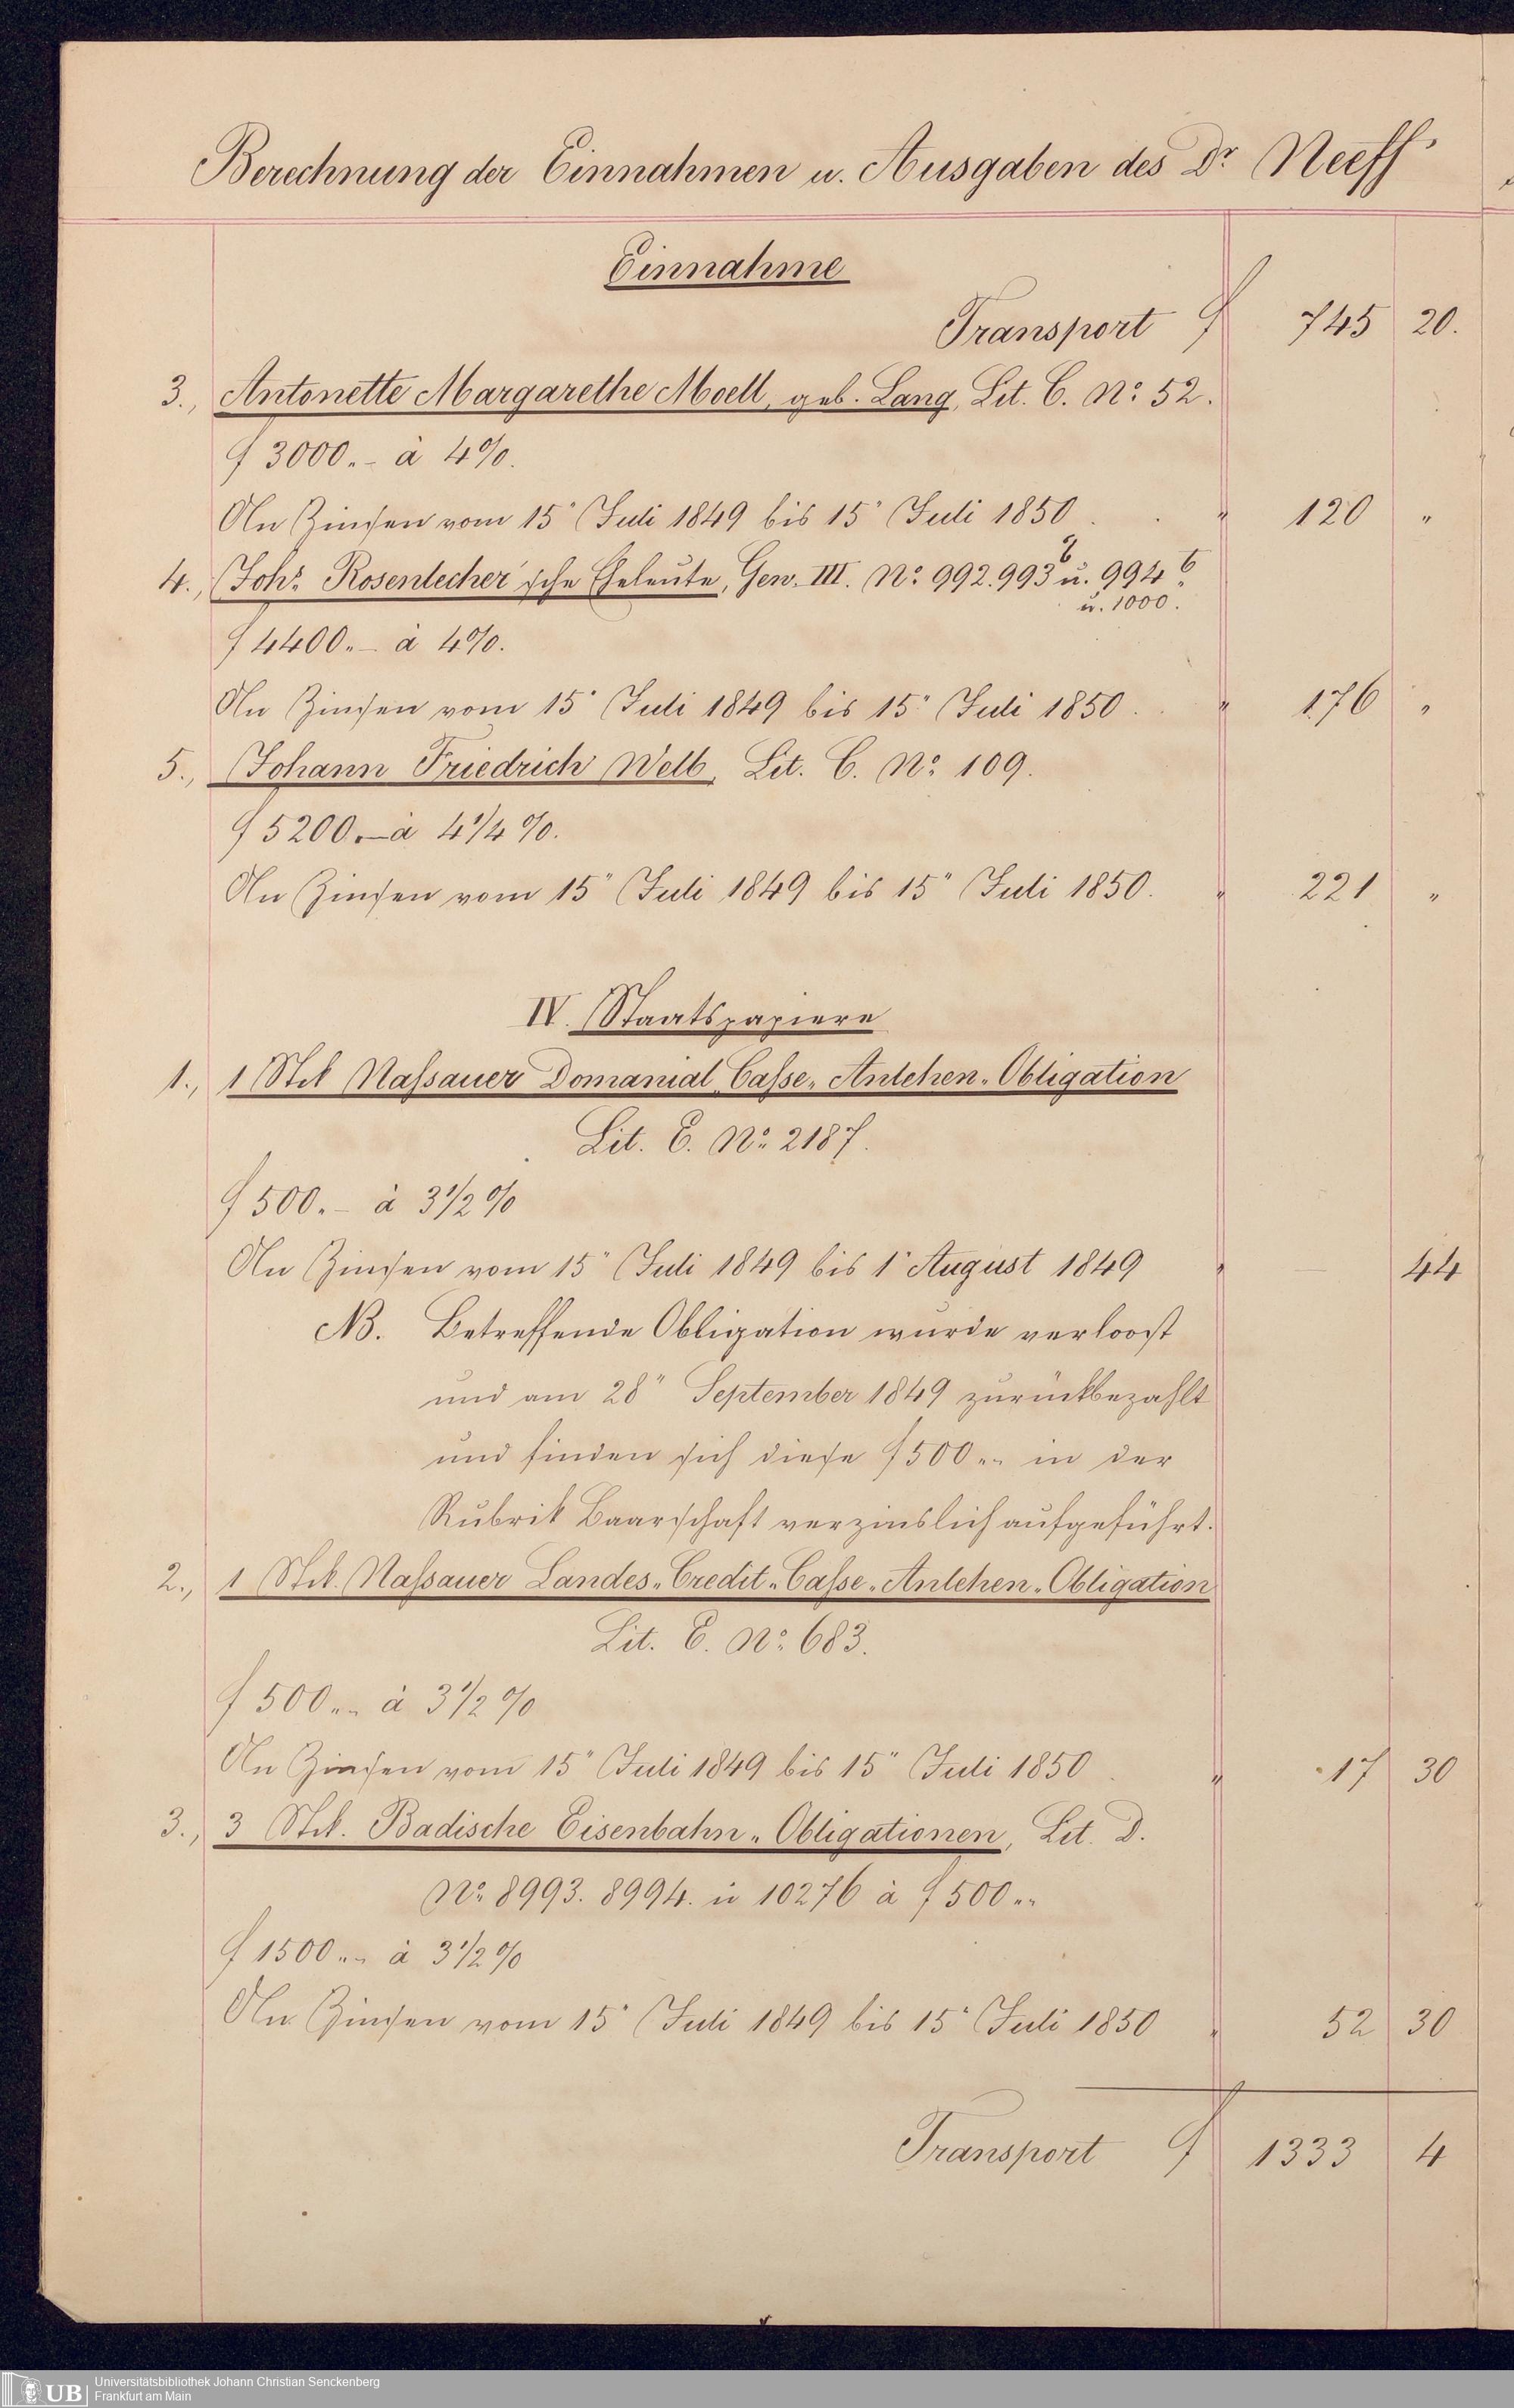 Berechnung der Einnahmen u. Ausgaben des Dr. Neeff'
Einnahme
Transport f 745 20.
3., Antonette Margarethe Moell, geb. Lang, Lit. C. No: 52.
f 3000.- à 4%.
An Zinsen vom 15" Juli 1849 bis 15" Juli 1850 . . " 120 "
4., Joh: Rosenlecher'sche Eheleute, Gew. III. No: 992. 993 b u. 994 b.
u. 1000.
f 4400.- à 4%.
An Zinsen vom 15" Juli 1849 bis 15" Juli 1850 . . " 176 "
5., Johann Friedrich Welb, Lit. C. No: 109.
f 5200.- à 4 1/4 %.
An Zinsen vom 15" Juli 1849 bis 15" Juli 1850. " 221 "
IV. Staatspapiere
1., 1 Stck Nassauer Domanial Casse-Anlehen-Obligation
Lit. E. No: 2187.
f 500.- à 3 1/2 %
An Zinsen vom 15" Juli 1849 bis 1" August 1849 " — 44
NB. Betreffende Obligation wurde verloost
und am 28" September 1849 zurückbezahlt
und finden sich diese f 500.- in der
Rubrik Baarschaft verzinslich aufgeführt.
2., 1 Stck. Nassauer Landes-Credit-Casse-Anlehen-Obligation
Lit. E. No: 683.
f 500.- à 3 1/2 %
An Zinsen vom 15" Juli 1849 bis 15" Juli 1850 . " 17 30
3., 3 Stck. Badische Eisenbahn-Obligationen, Lit. D.
No: 8993. 8994. u 10276 à f 500.-
f 1500.- à 3 1/2 %
An Zinsen vom 15" Juli 1849 bis 15" Juli 1850 " 52 30
Transport f 1333 4
UB Universitätsbibliothek Johann Christian Senckenberg
Frankfurt am Main